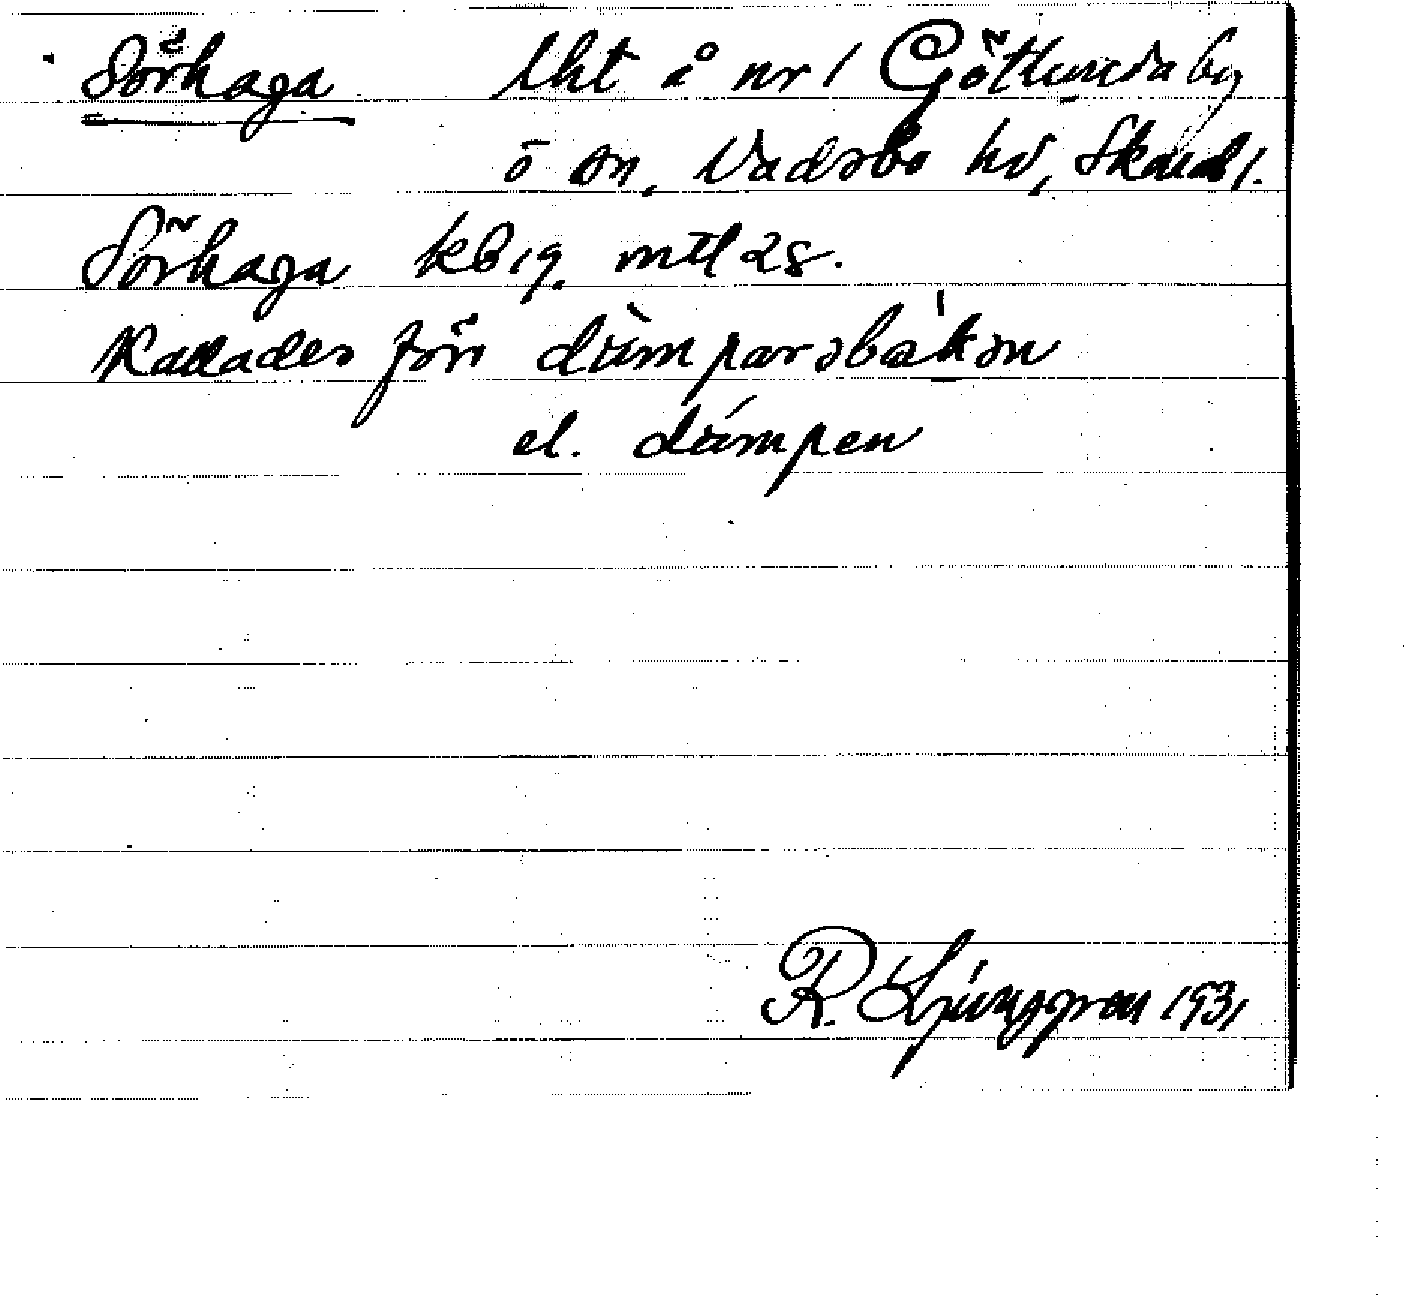 Sörhaga lht å nr 1 Götlunda by
o sn, Vadsbo hd, Skarab l.
Sörhaga kb 19. mtl 28.
Kallades förr dàmparsbàkən
el. dámpen
R. Ljunggren 1931